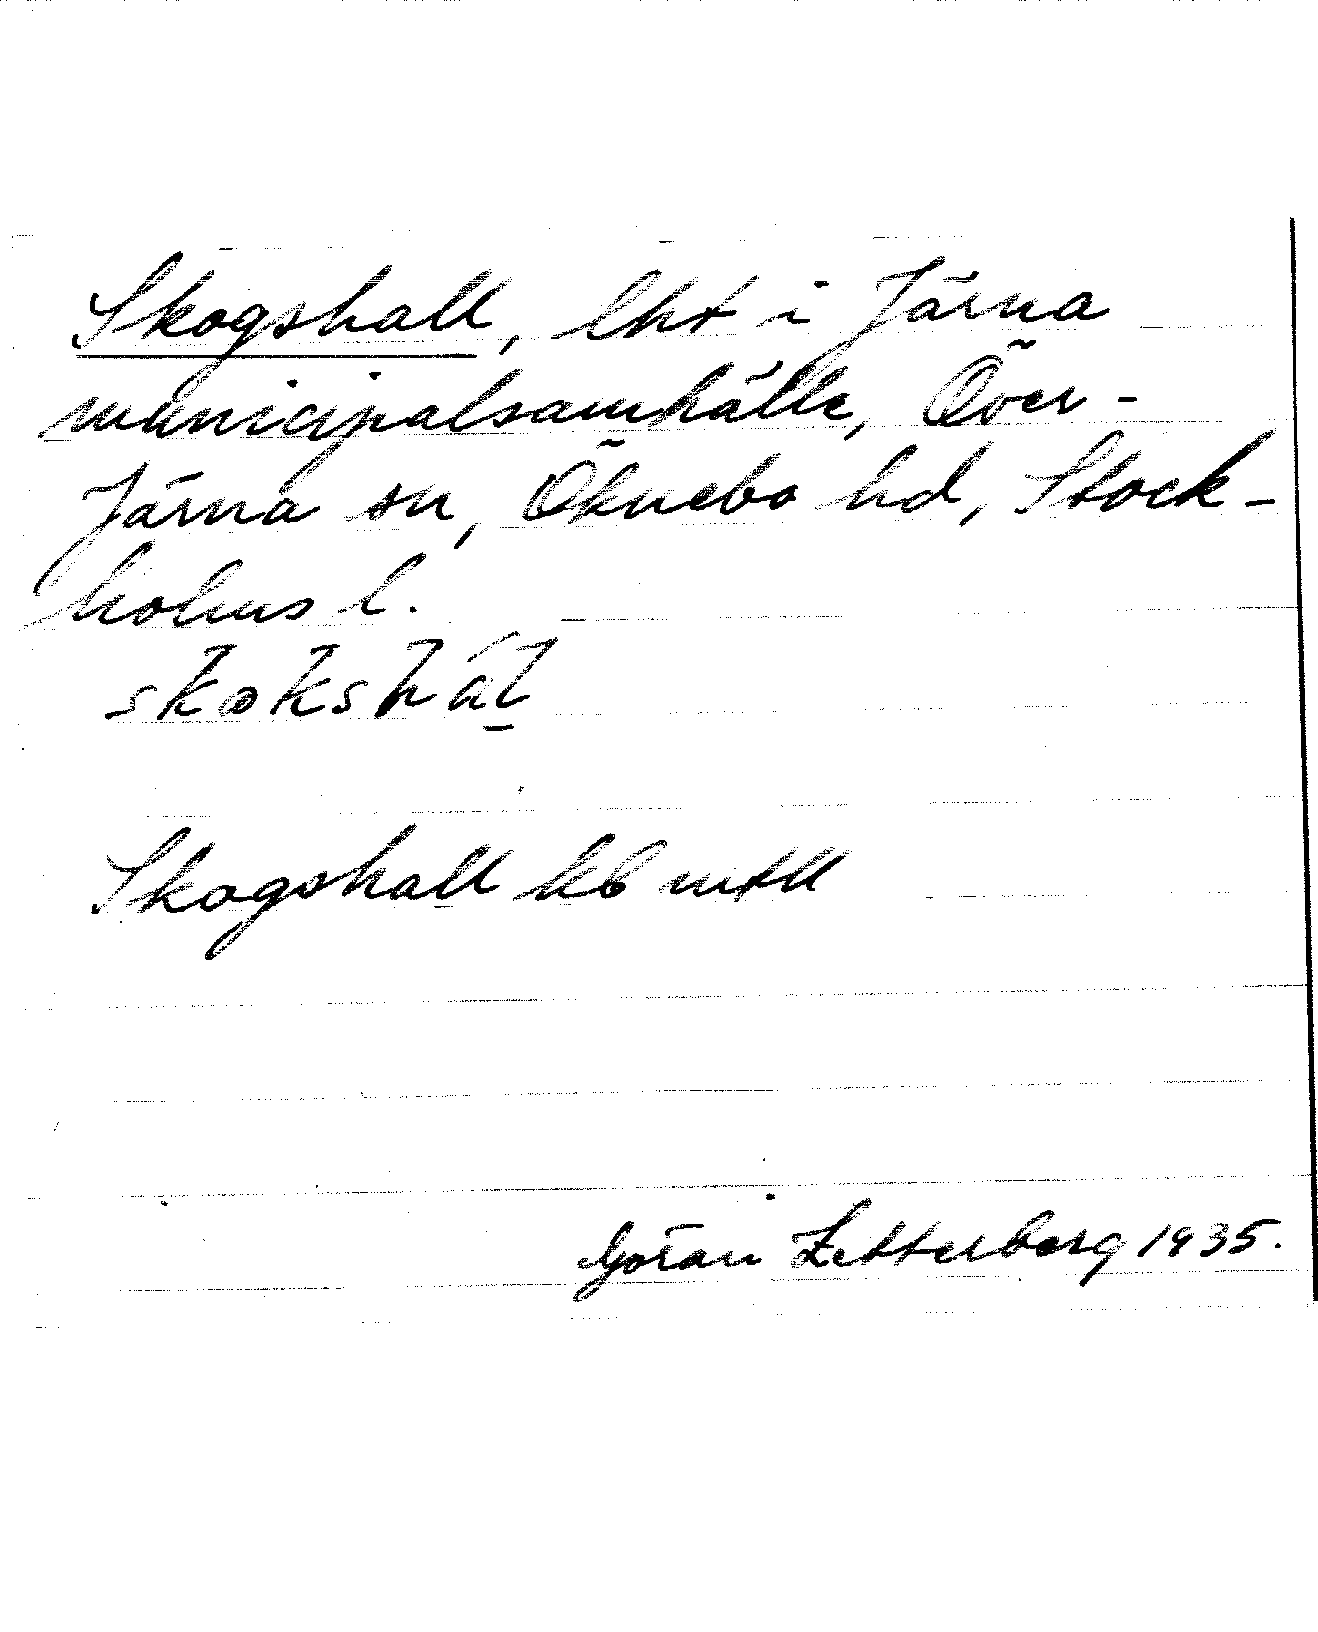 Skogshall, lht i Järna
municipalsamhälle, Över-
Järna sn, Öknebo hd, Stock-
holms l.
skøkshál̲
Skogshall kb mtll
Göran Zetterberg 1935.